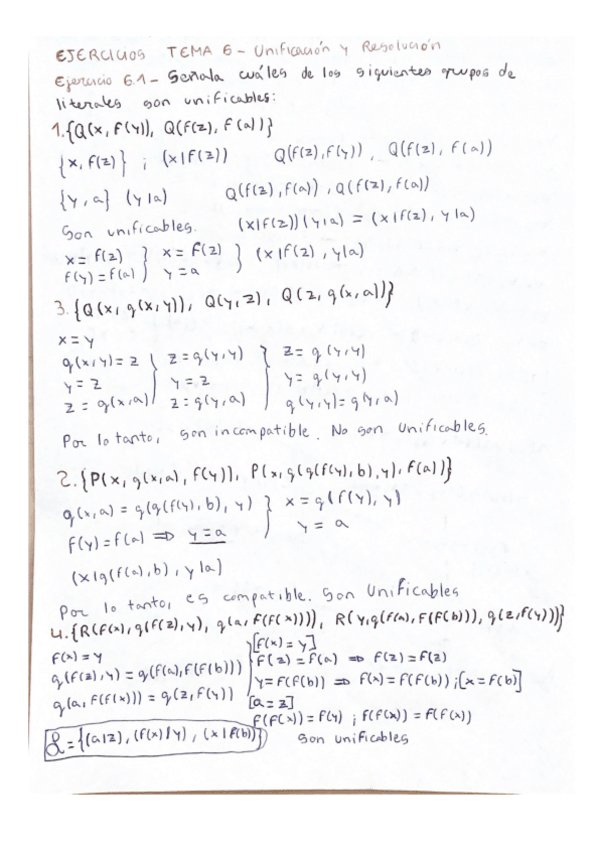 EJERCICIOS TEMA 6 - Unificación y Resolución
Ejercicio 6.1 - Señala cuáles de los siguientes grupos de
literales son unificables:
1. {Q(x, f(y)), Q(f(z), f(a))}
{x, f(z)} ; (x|f(z)) Q(f(z), f(y)), Q(f(z), f(a))
{y, a} (y|a) Q(f(z), f(a)), Q(f(z), f(a))
Son unificables. (x|f(z))(y|a) = (x|f(z), y|a)
x = f(z) } x = f(z) } (x|f(z), y|a)
f(y) = f(a) } y = a }
3. {Q(x, g(x,y)), Q(y,z), Q(z, g(x,a))}
x = y
g(x,y) = z } z = g(y,y) } z = g(y,y)
y = z } y = z } y = g(y,y)
z = g(x,a) } z = g(y,a) } g(y,y) = g(y,a)
Por lo tanto, son incompatible. No son unificables.
2. {P(x, g(x,a), f(y)), P(x, g(g(f(y), b), y), f(a))}
g(x,a) = g(g(f(y), b), y) } x = g(f(y), y)
f(y) = f(a) ⇒ y = a } y = a
(x|g(f(a), b), y|a)
Por lo tanto, es compatible. Son Unificables
4. {R(f(x), g(f(z), y), g(a, f(f(x)))), R(y, g(f(a), f(f(b))), g(z, f(y)))}
f(x) = y [f(x) = y]
g(f(z), y) = g(f(a), f(f(b))) } f(z) = f(a) ⇒ f(z) = f(z)
g(a, f(f(x))) = g(z, f(y)) } y = f(f(b)) ⇒ f(x) = f(f(b)) ; [x = f(b)]
[a = z]
f(f(x)) = f(y) ; f(f(x)) = f(f(x))
= {(a|z), (f(x)|y), (x|f(b))} son unificables